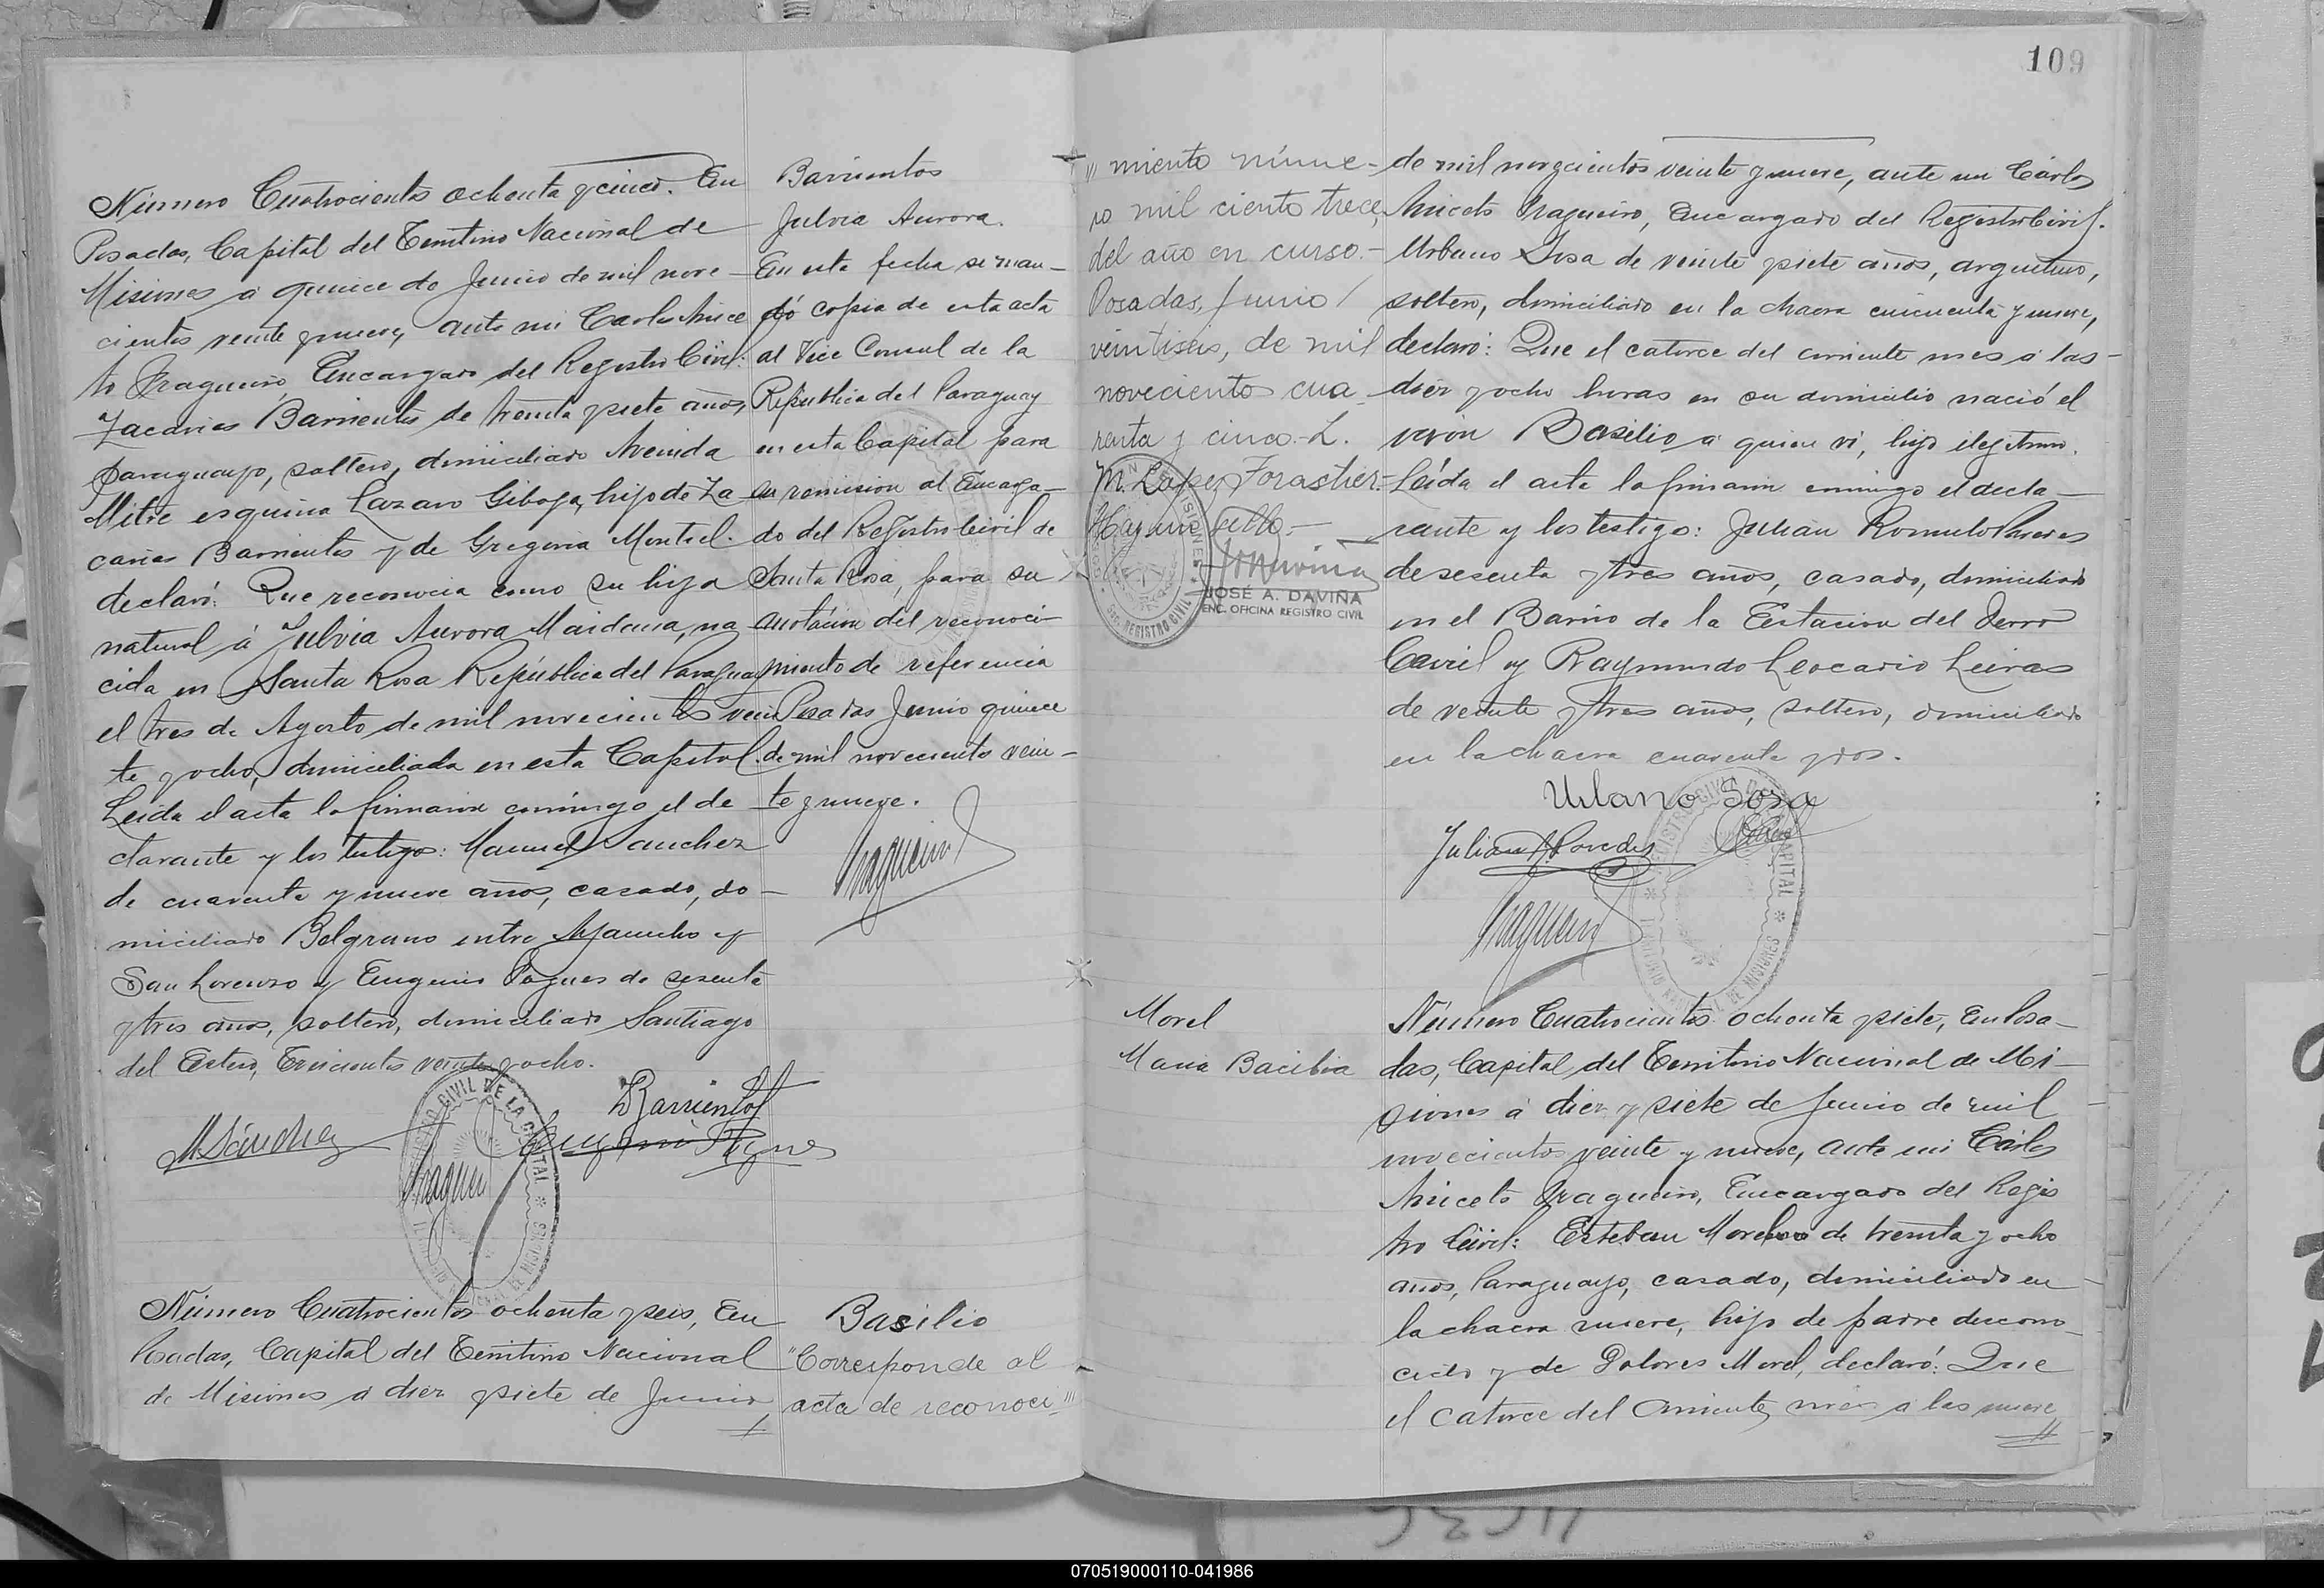 109
Número Cuatrocientos ochenta y cinco. En
Posadas, Capital del Territorio Nacional de
Misiones a quince de Junio de mil nove-
cientos veinte y nueve, ante mi Carlos Anice
to Fragueiro, Encargado del Registro Civil:
Zacarias Barrientos de treinta y siete años,
Paraguayo, soltero, domiciliado Avenida
Mitre esquina Lazaro Giboya, hijo de Za
carias Barrientos y de Gregoria Montiel.
declaró: Que reconocia como su hija
natural á Julvia Aurora Maidana, na
cida en Santa Rosa República del Paraguay
el tres de Agosto de mil novecientos vein
te y ocho, domiciliada en esta Capital.
Leida el acta la firmaron conmigo el de
clarante y los testigos: Manuel Sanchez
de cuarenta y nueve años, casado, do-
miciliado Belgrano entre Ayacucho y
San Lorenzo y Eugenio Pagnes de sesenta
y tres años, soltero, domiciliado Santiago
del Estero, Trescientos veinte y ocho.
Z Barrientos
M Sánchez
Eugenio
Fragueiro
REGISTRO CIVIL DE LA CAPITAL
Barrientos
Julvia Aurora.
En esta fecha se man-
dó copia de esta acta
al Vice Consul de la
República del Paraguay
en esta Capital para
su remision al Encarga-
do del Registro Civil de
Santa Rosa, para su
anotación del reconoci-
miento de referencia
Posadas Junio quince
de mil novecientos vein-
te y nueve.
Fragueiro
Número Cuatrocientos ochenta y seis, En
Posadas, Capital del Territorio Nacional
de Misiones á diez y siete de Junio
Basilio
"Corresponde al
acta de reconoci"
" miento núme-
ro mil ciento trece,
del año en curso.-
Posadas, Junio
veintiseis, de mil
noveciento cua
renta y cinco.- L.
M. Lopez Forastier.-
JOSÉ A. DAVIÑA
ENC. OFICINA REGISTRO CIVIL
REGISTRO CIVIL
de mil novecientos veinte y nueve, ante mi Cárlos
Aniceto Fragueiro, Encargado del Registro Civil.
Urbano Sosa de veinte y siete años, argentino,
soltero, domiciliado en la chacra cincuenta y nueve,
declaró: Que el catorce del corriente mes á las
diez y ocho horas en su domicilio nació el
varón Basilio a quien ví, hijo ilegitimo.
Leída el acta la firmaron conmigo el decla-
rante y los testigo: Julian Romulo Paredes
de sesenta y tres años, casado, domiciliado
en el Barrio de la Estacion del Ferro
Carril y Raymundo Leocadio Leiras
de veinte y tres años, soltero, domiciliado
en la chacra cuarenta y dos.
Urbano Sosa
Julian R. Paredes
Fragueiro
REGISTRO CIVIL DE LA CAPITAL
TERRITORIO NACIONAL DE MISIONES
Morel
Maria Bacilia
Número Cuatrocientos ochenta y siete, En Posa-
das, Capital del Territorio Nacional de Mi-
siones á diez y siete de Junio de mil
novecientos veinte y nueve, ante mi Cárlos
Aniceto Fragueiro, Encargado del Regis
tro Civil: Esteban Morel de treinta y ocho
años, Paraguayo, casado, domiciliado en
la chacra nueve, hijo de padre descono-
cido y de Dolores Morel, declaró: Que
el catorce del corriente mes á las nueve
070519000110-041986